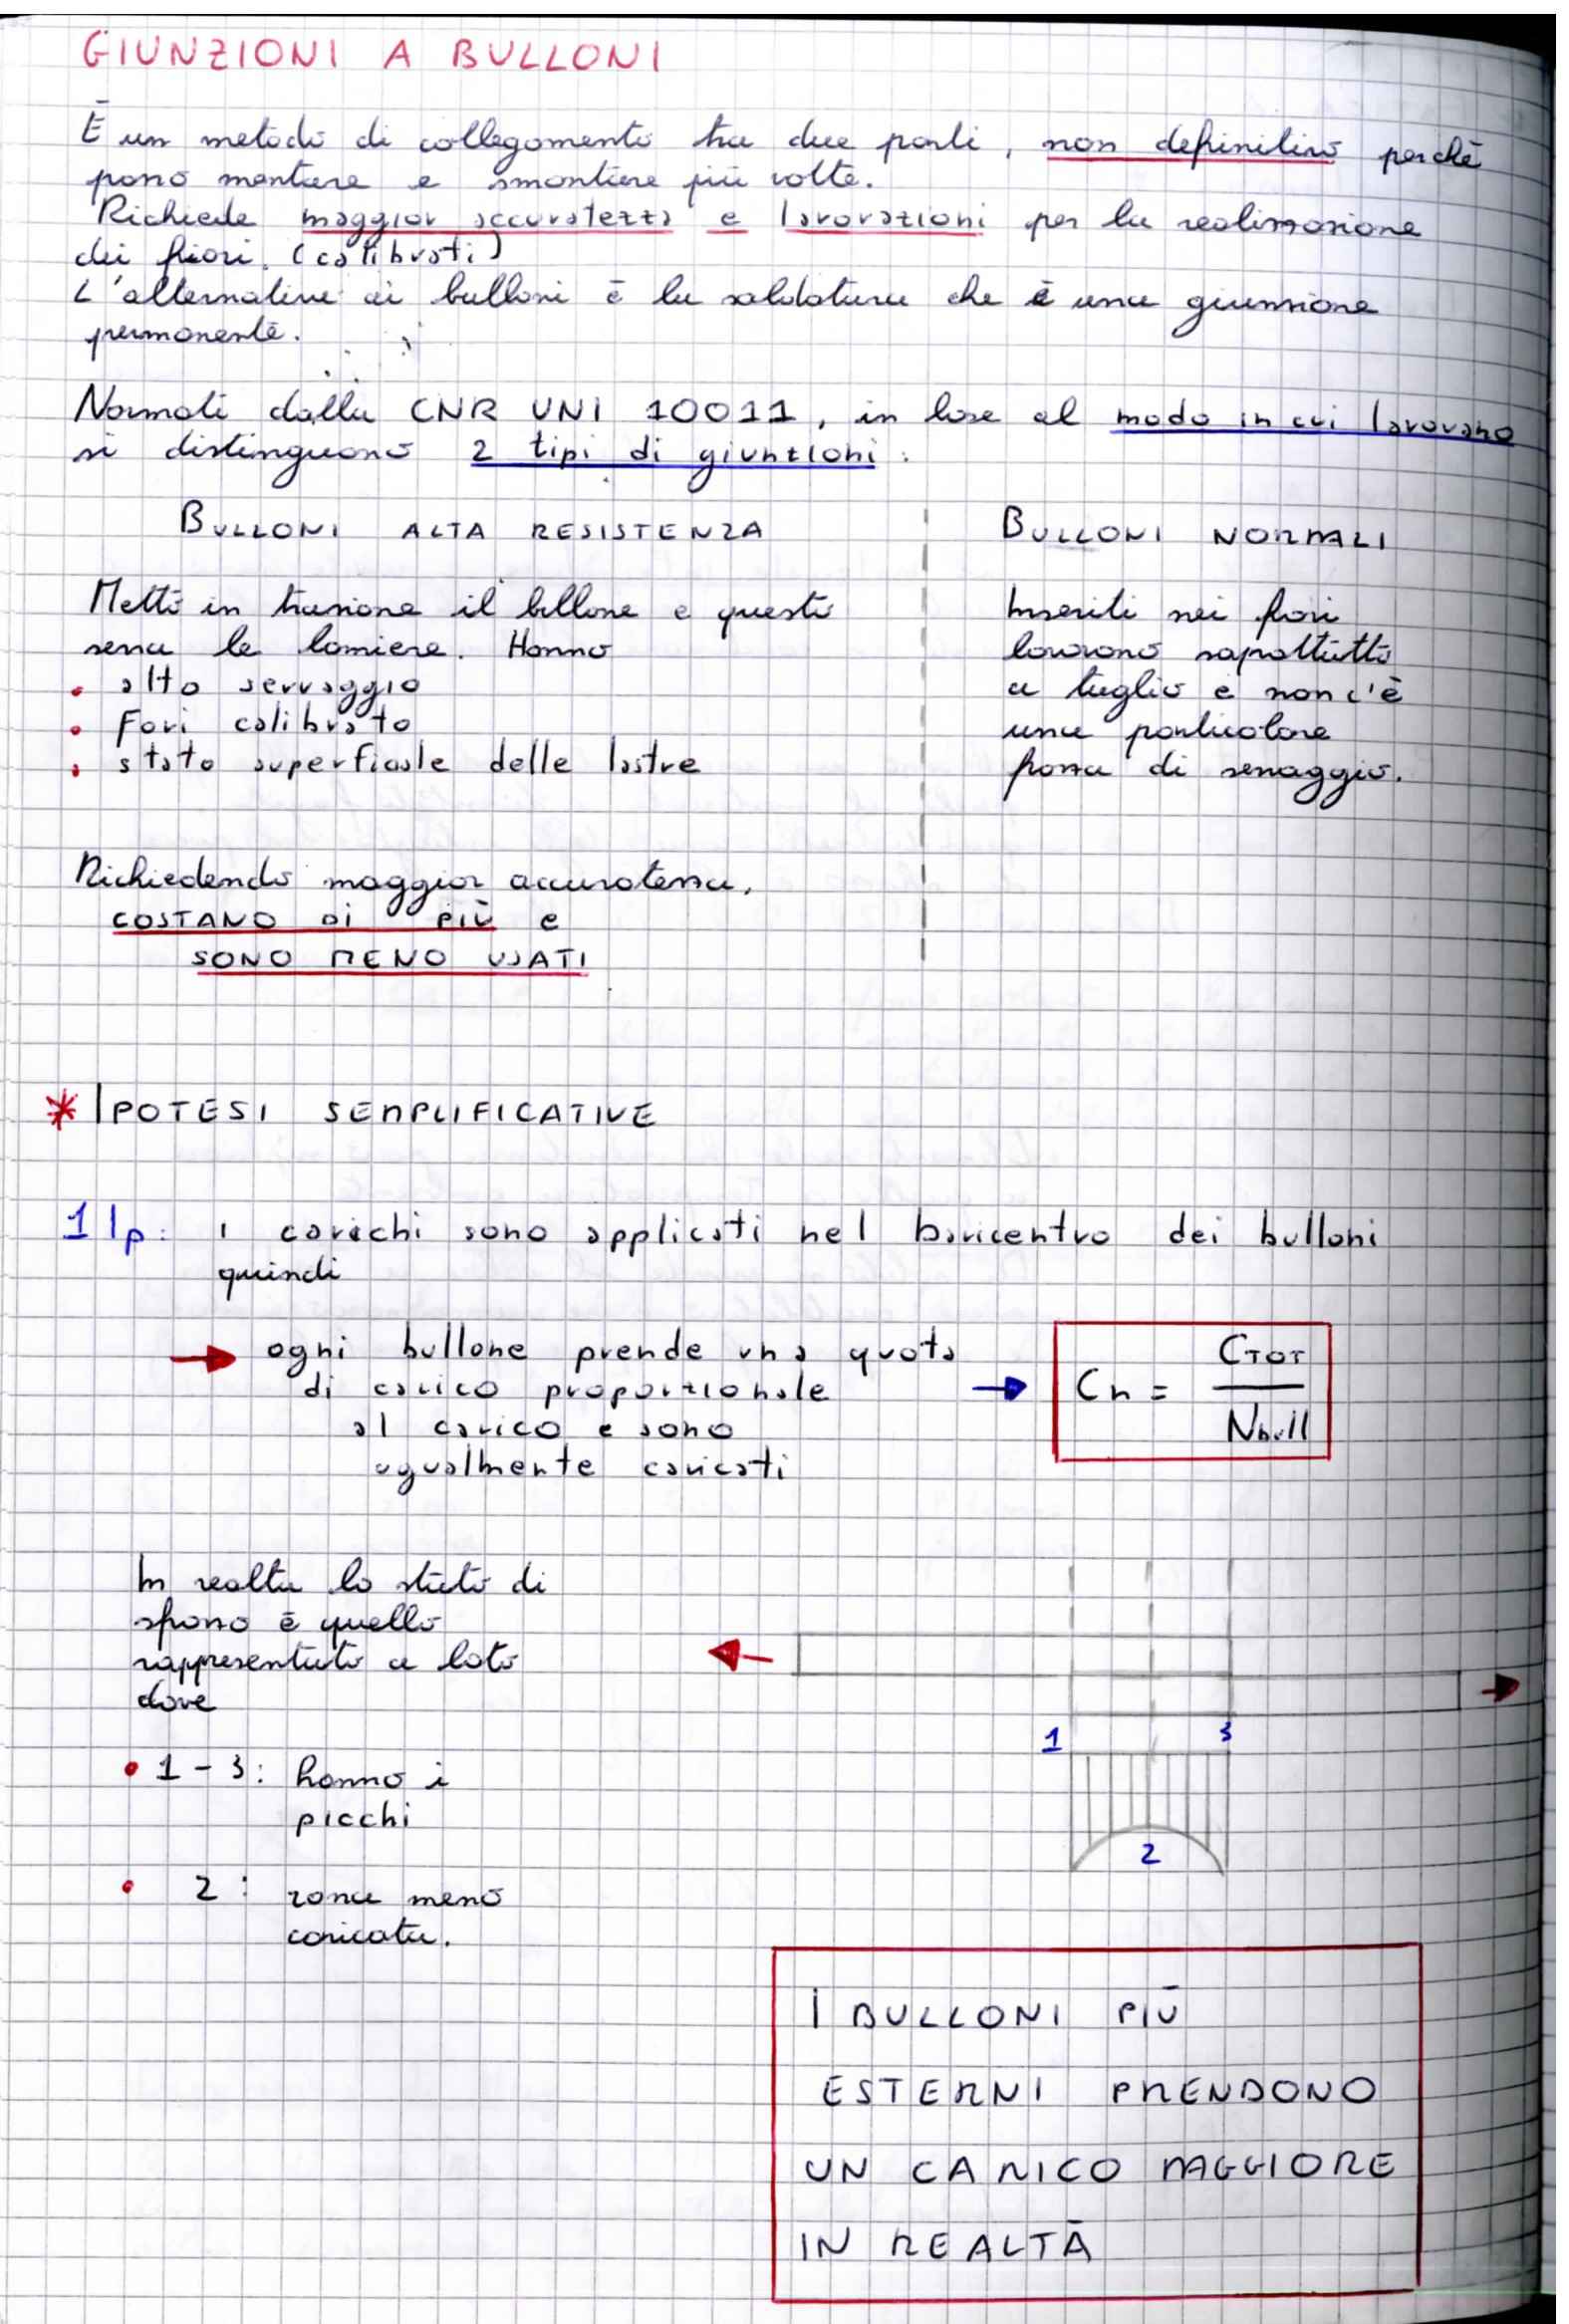 GIUNZIONI A BULLONI
È un metodo di collegamento tra due parti, non definitivo perchè
posso montare e smontare più volte.
Richiede maggior accuratezza e lavorazioni per la realizzazione
dei fiori. (calibrati)
L'alternativa ai bulloni è la saldatura che è una giunzione
permanente.
Normati dalla CNR UNI 10011, in base al modo in cui lavorano
si distinguono 2 tipi di giunzioni:
BULLONI ALTA RESISTENZA
Metto in trazione il bullone e questo
serra le lamiere. Hanno
• alto serraggio
• Fori calibrato
• stato superficiale delle lastre
Richiedendo maggior accuratezza,
COSTANO DI PIÙ e
SONO MENO USATI
BULLONI NORMALI
Inseriti nei fori
lavorano soprattutto
a taglio e non c'è
una particolare
forza di serraggio.
* IPOTESI SEMPLIFICATIVE
1 Ip: i carichi sono applicati nel baricentro dei bulloni
quindi
→ ogni bullone prende una quota
di carico proporzionale
al carico e sono
ugualmente caricati
→ Cn = CTOT / Nbull
In realtà lo stato di
sforzo è quello
rappresentato a lato
dove
• 1-3: hanno i
picchi
• 2: zona meno
caricata.
1 3
2
I BULLONI PIÙ
ESTERNI PRENDONO
UN CARICO MAGGIORE
IN REALTÀ